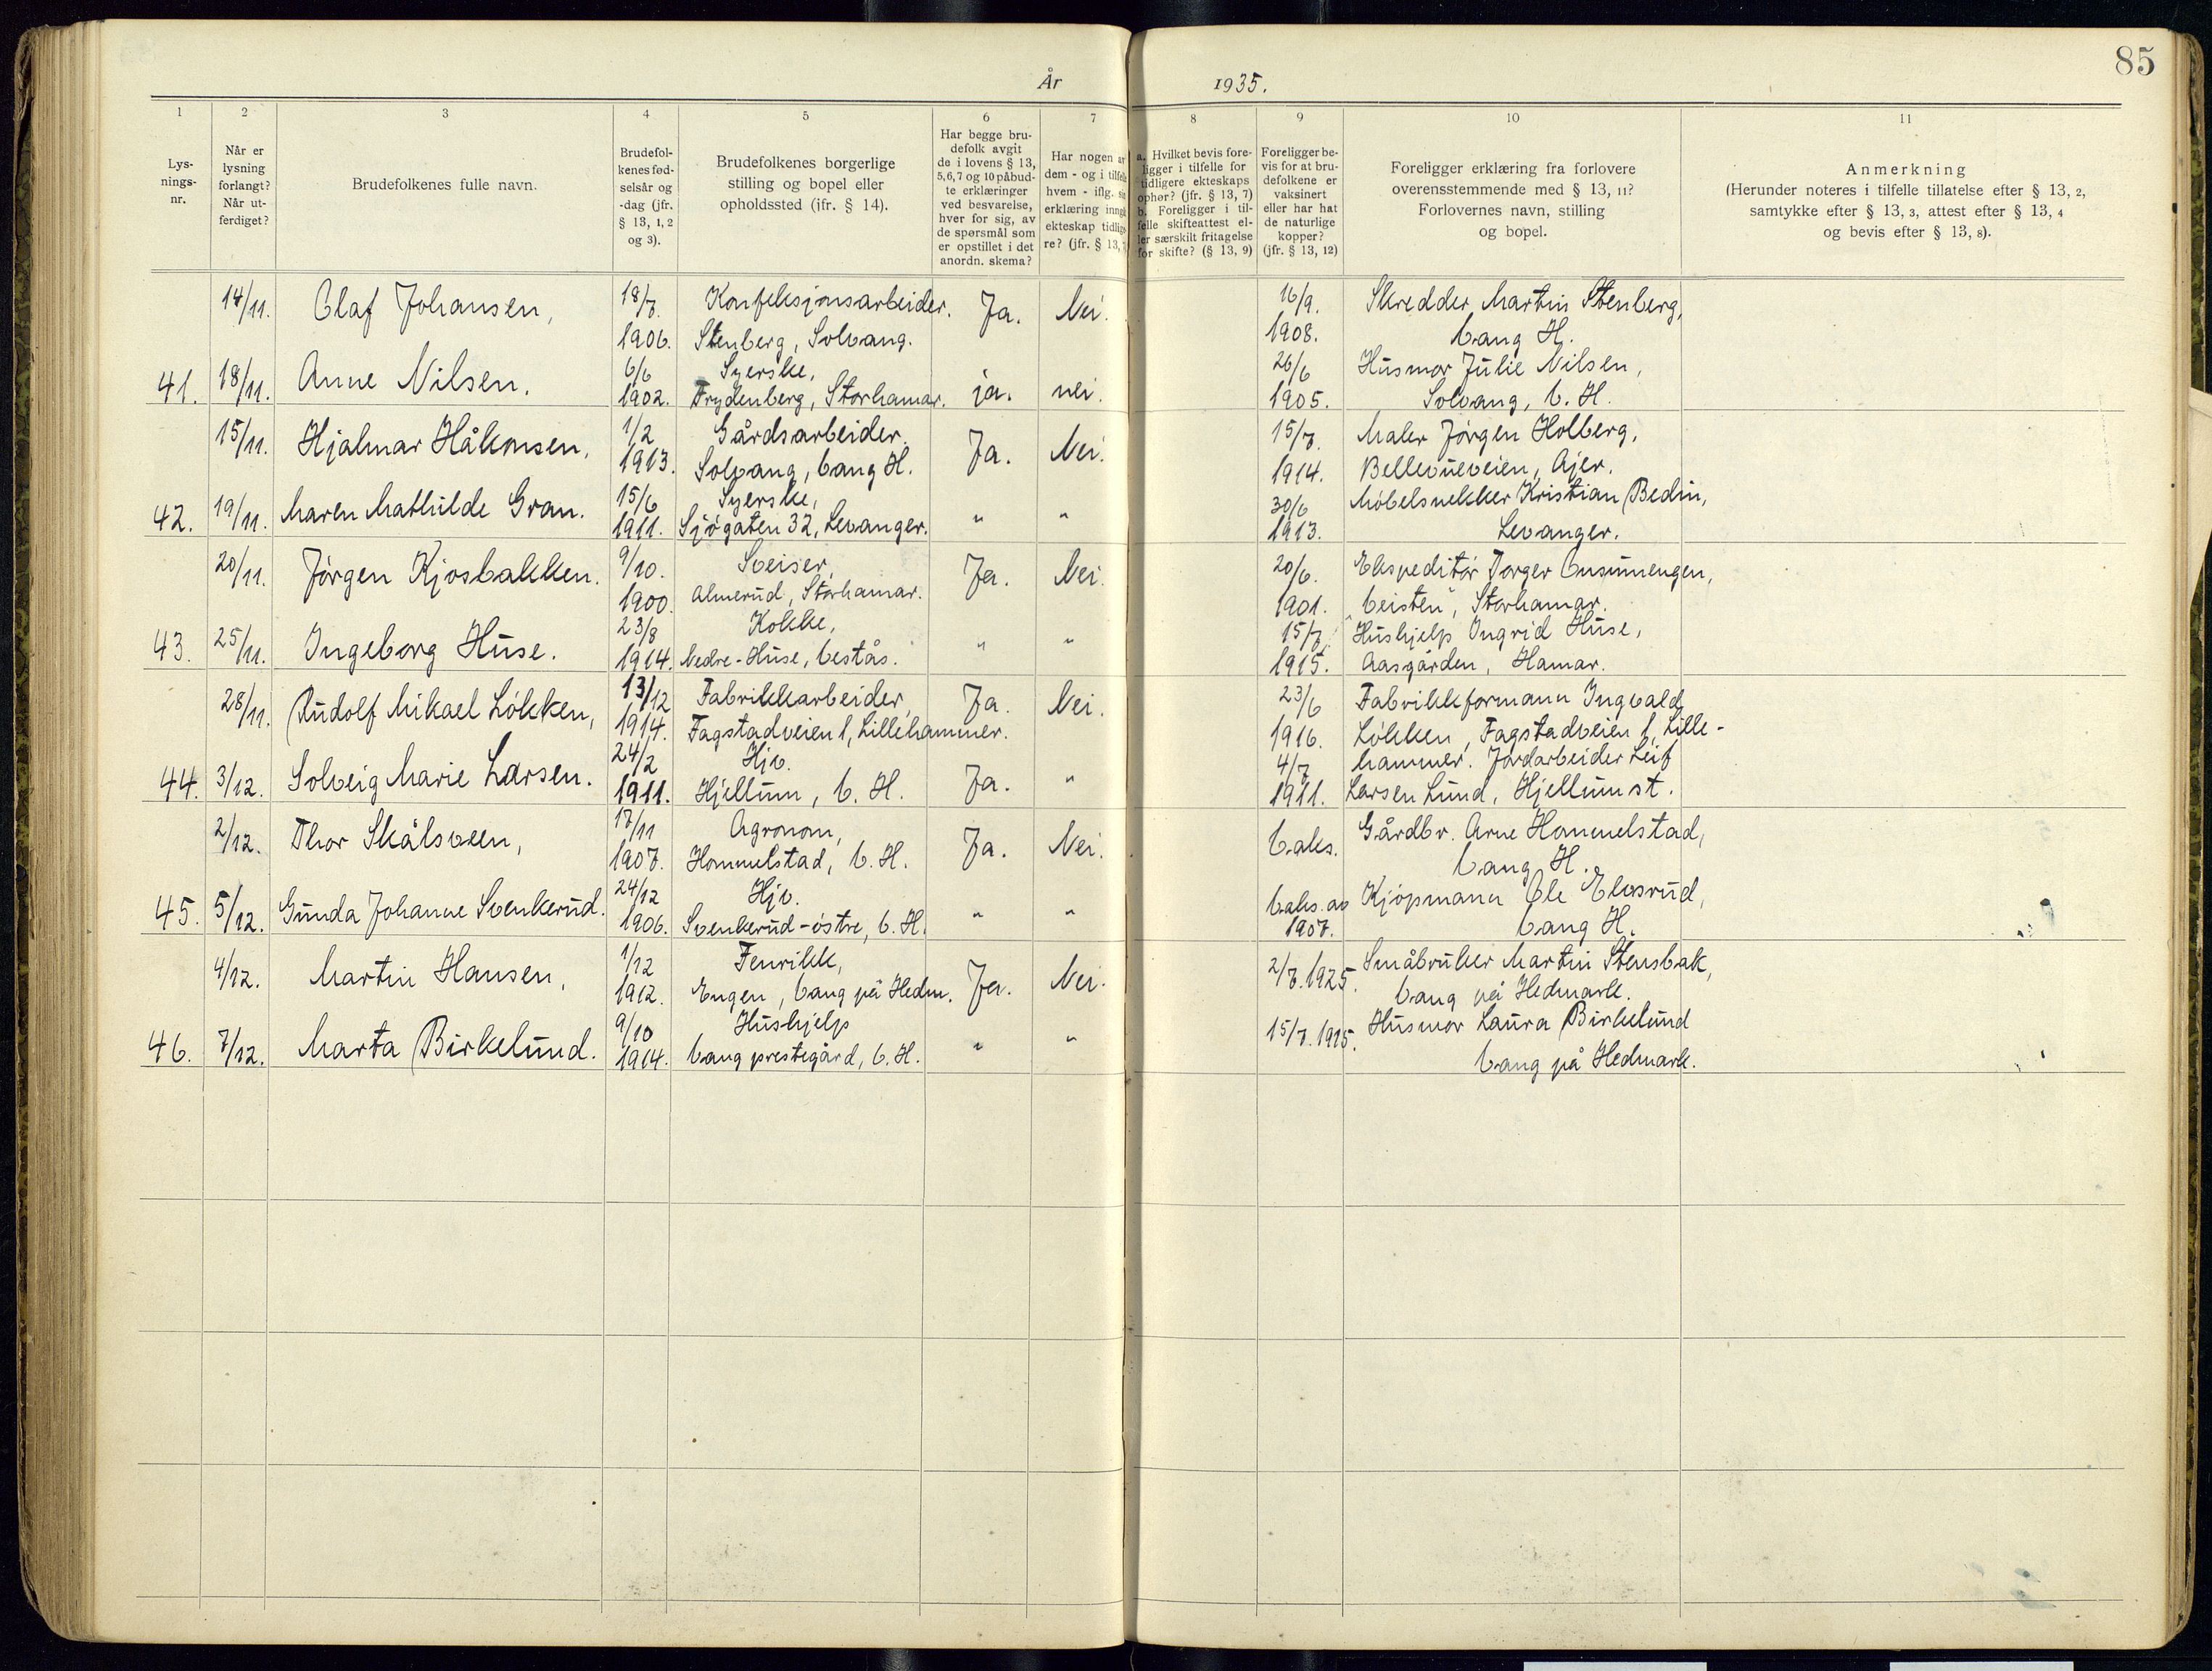 85
År 1935.
1 2 3 4 5 6 7 8 9 10 11
Lys-
nings-
nr.
Når er
lysning
forlangt?
Når ut-
ferdiget?
Brudefolkenes fulle navn.
Brudefol-
kenes fød-
selsår og
-dag (jfr.
§ 13, 1, 2
og 3).
Brudefolkenes borgerlige
stilling og bopel eller
opholdssted (jfr. § 14).
Har begge bru-
defolk avgit
de i lovens § 13,
5, 6, 7 og 10 påbud-
te erklæringer
ved besvarelse,
hver for sig, av
de spørsmål som
er opstillet i det
anordn. skema?
Har nogen av
dem - og i tilfelle
hvem - iflg. sin
erklæring inngåt
ekteskap tidlige-
re? (jfr. § 13, 7
a. Hvilket bevis fore-
ligger i tilfelle for
tidligere ekteskaps
ophør? (jfr. § 13, 7)
b. Foreligger i til-
felle skifteattest el-
ler særskilt fritagelse
for skifte? (§ 13, 9)
Foreligger be-
vis for at bru-
defolkene er
vaksinert
eller har hat
de naturlige
kopper?
(jfr. § 13, 12)
Foreligger erklæring fra forlovere
overensstemmende med § 13, 11?
Forlovernes navn, stilling
og bopel.
Anmerkning
(Herunder noteres i tilfelle tillatelse efter § 13, 2,
samtykke efter § 13, 3, attest efter § 13, 4
og bevis efter § 13, 8).
14/11. Olaf Johansen, 18/7. Konfeksjonsarbeider. Ja. Nei. 16/9. Skredder Martin Stenberg,
1906. Stenberg, Solvang. 1908. Vang H.
41. 18/11. Anne Nilsen. 6/6 Syerske, 26/6 Husmor Julie Nilsen,
1902. Frydenberg, Storhamar. ja. nei. 1905. Solvang, V. H.
15/11. Hjalmar Håkonsen, 1/2 Gårdsarbeider. Ja. Nei. 15/7. Maler Jörgen Holberg,
1913. Solvang, Vang H. 1914. Bellevueveien, Ajer.
42. 19/11. Maren Mathilde Gran. 15/6 Syerske, 30/6 Möbelsnekker Kristian Bedin,
1911. Sjögaten 32, Levanger. " " 1913. Levanger.
20/11. Jörgen Kjosbakken. 9/10. Sveiser, Ja. Nei. 20/6. Ekspeditör Torger Unsmnengen,
1900. Almerud, Storhamar. 1901. "Veisten", Storhamar.
43. 25/11. Ingeborg Huse. 23/8 Kokke, " " 15/7. Hushjelp Ingrid Huse,
1914. Nedre-Huse, Vestås. 1915. Aasgården, Hamar.
28/11. Rudolf Mikael Lökken, 13/12 Fabrikkarbeider, Ja. Nei. 23/6 Fabrikkformann Ingvald
1914. Fagstadveien 1, Lillehammer. 1916. Lökken, Fagstadveien 1, Lille-
44. 3/12. Solveig Marie Larsen. 24/2 Hjv. 4/7 hammer. Jordarbeider Leif
1911. Hjellum, V. H. Ja. " 1911. Larsen Lund, Hjellum st.
2/12. Thor Skålsveen, 17/11 Agronom, Ja. Nei. Vaks. Gårdbr. Arne Hommelstad,
1907. Hommelstad, V. H. Vang H.
45. 5/12. Gunda Johanne Svenkerud. 24/12 Hjv. " " Vaks. av Kjöpmann Ole Elvsrud,
1906. Svenkerud-östre, V. H. 1907. Vang H.
4/12. Martin Hansen, 1/12 Fenrikk, Ja. Nei. 2/7.1925. Småbruker Martin Stensbak,
1912. Engen, Vang på Hedm. Vang på Hedmark.
46. 7/12. Marta Birkelund. 9/10 Hushjelp " " 15/7.1915. Husmor Laura Birkelund
1914. Vang prestegård, V. H. Vang på Hedmark.